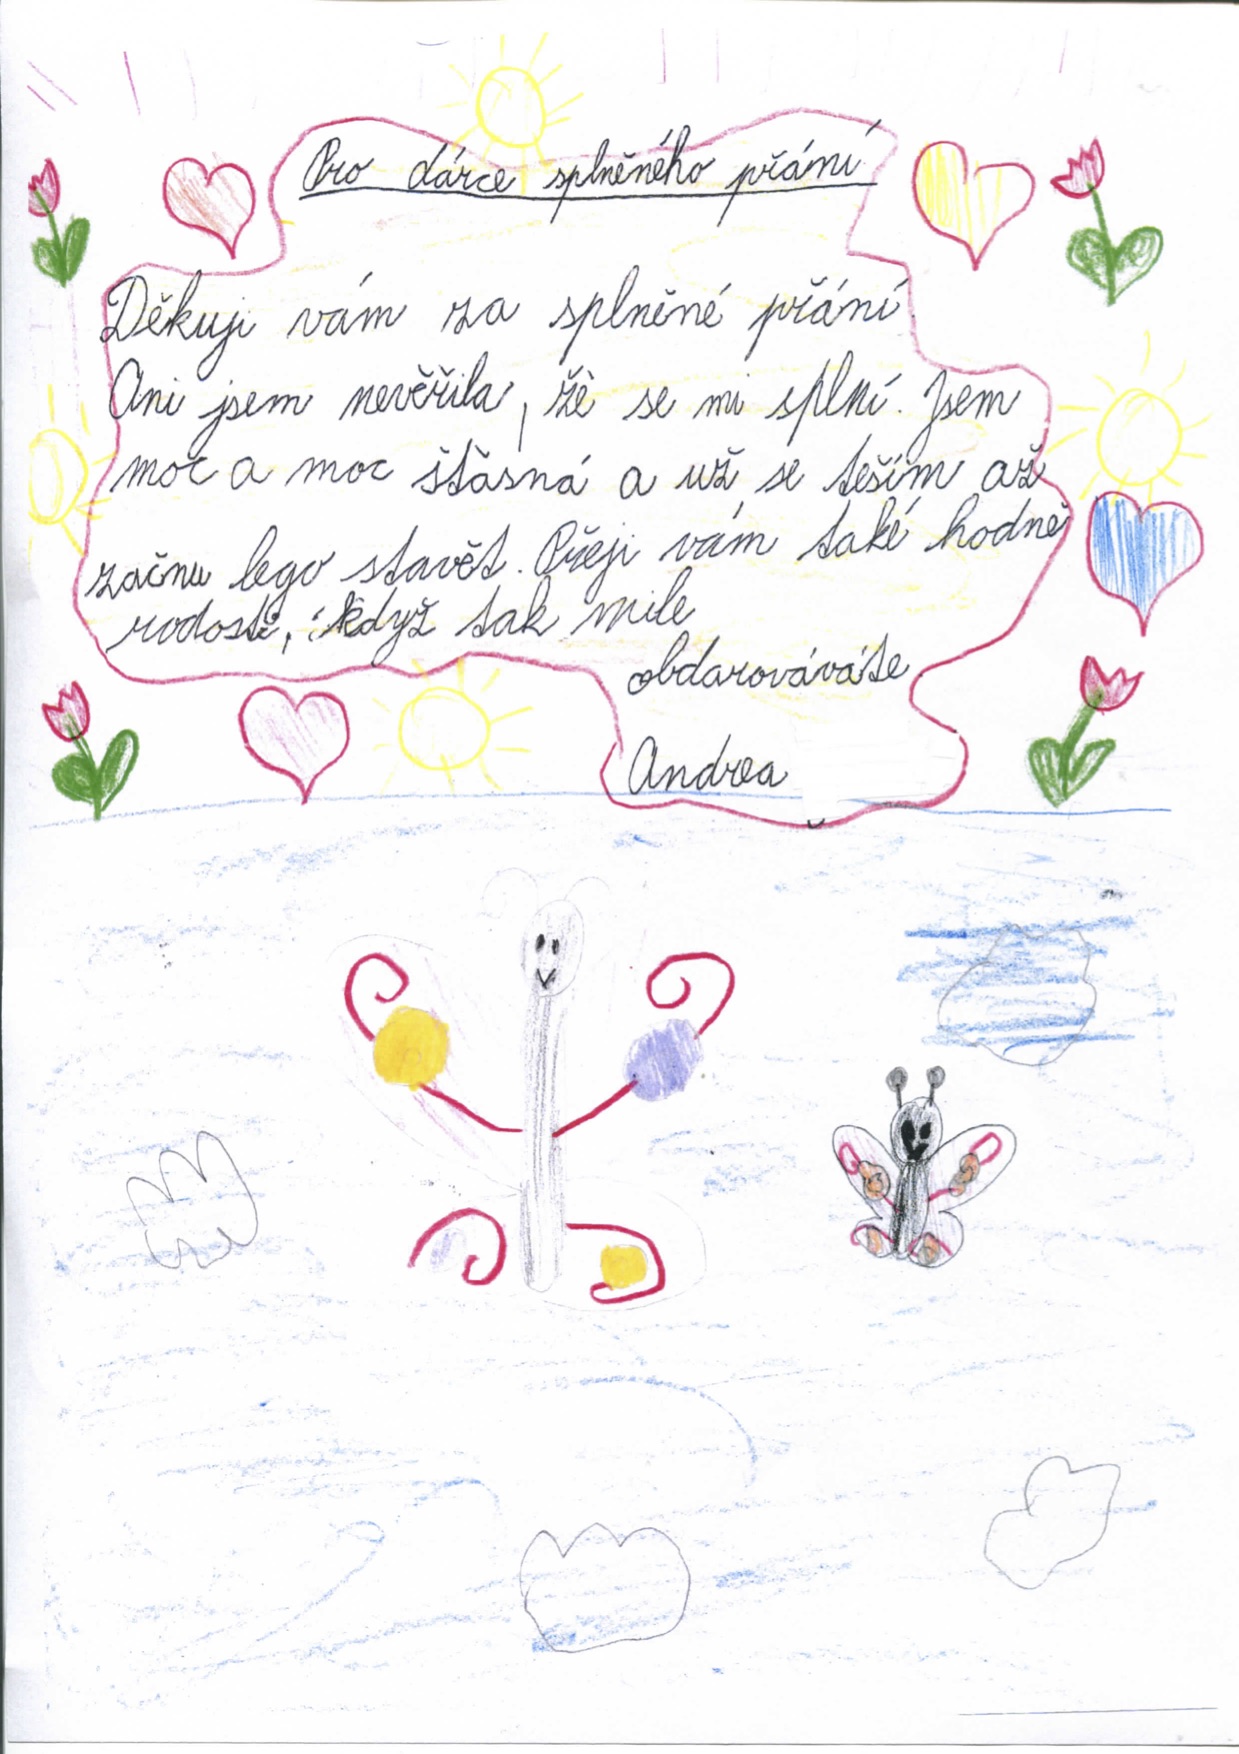 Pro dárce splněného přání
Děkuji vám za splněné přání.
Ani jsem nevěřila, že se mi splní. Jsem
moc a moc šťasná a už se těším až
začnu lego stavět. Přeji vám také hodně
rodosti, když tak mile
obdarováváte
Andrea